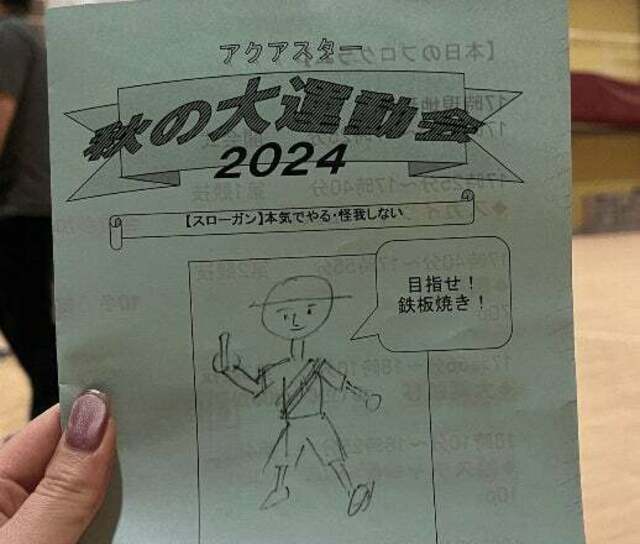 アクアスター
秋の大運動会
2024
【スローガン】本気でやる・怪我しない
目指せ！
鉄板焼き！